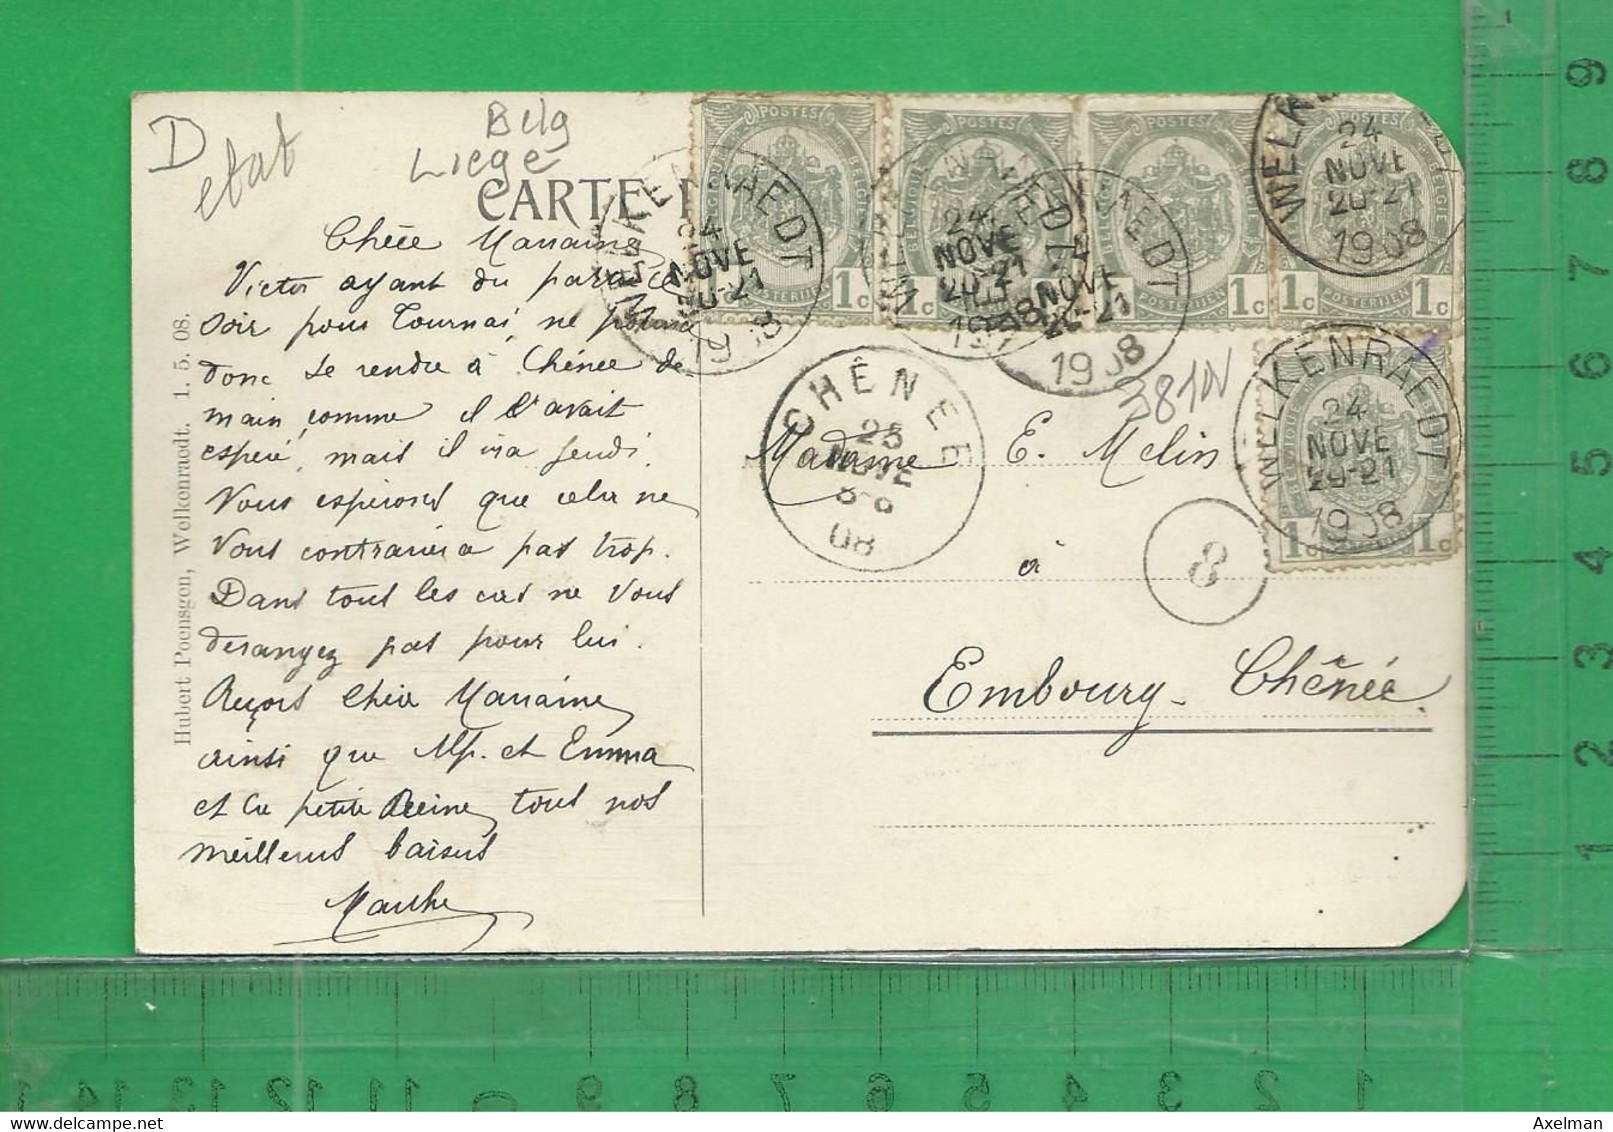 D
etat
Belg
Liege
CARTE
Chère Marraine
Victor ayant du partir ce
soir pour Tournai, ne pourra
donc se rendre à Chênée de-
main, comme il l'avait
espéré, mais il ira jeudi.
Vous espérons que cela ne
Vous contrariera pas trop.
Dans tous les cas ne vous
derangez pas pour lui.
Reçois chère Marraine
ainsi que Mp. et Emma
et la petite Reine tous nos
meilleurs baisers
Marthe
Hubert Poensgen, Welkenraedt. 1. 5. 08.
POSTES
BELGIQUE
BELGIË
POSTERIJEN
1c
POSTES
1c 1c
POSTES
1c 1c
POSTES
1c 1c
1c 1c
WELKENRAEDT
24
NOVE
20-21
1908
WELKENRAEDT
24
NOVE
20-21
1908
WELKENRAEDT
NOVE
20-21
1908
WELKENRAEDT
24
NOVE
20-21
1908
WELKENRAEDT
24
NOVE
20-21
1908
CHÊNEE
25
NOVE
08
3810N
Madame E. Melin
à
8
Embourg-Chênée
9
8
7
6
5
4
3
2
1
14 13 12 11 9 8 7 6 5 4 3 2 1
Axelman